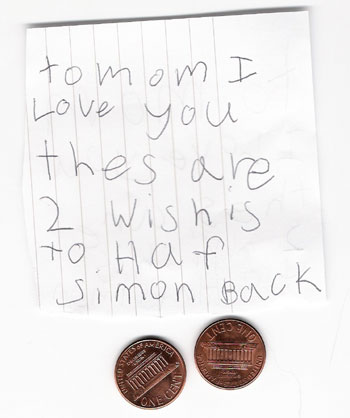 to mom I
Love you
thes are
2 wishis
to Haf
simon Back
UNITED STATES OF AMERICA
ONE CENT
ONE CENT